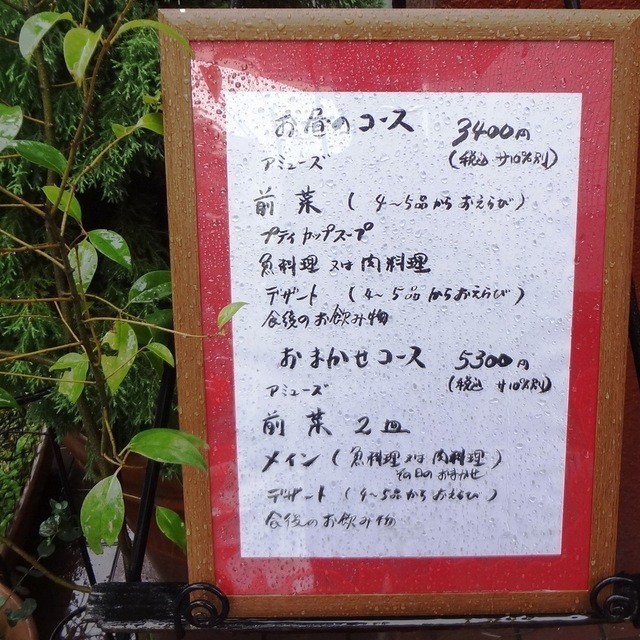 お昼のコース 3400円
アミューズ (税込 サ10%別)
前菜 (4〜5品からおえらび)
プティカップスープ
魚料理 又は 肉料理
デザート (4〜5品からおえらび)
食後のお飲み物
おまかせコース 5300円
アミューズ (税込 サ10%別)
前菜 2皿
メイン (魚料理 又は 肉料理)
その日のおまかせ
デザート (4〜5品からおえらび)
食後のお飲み物